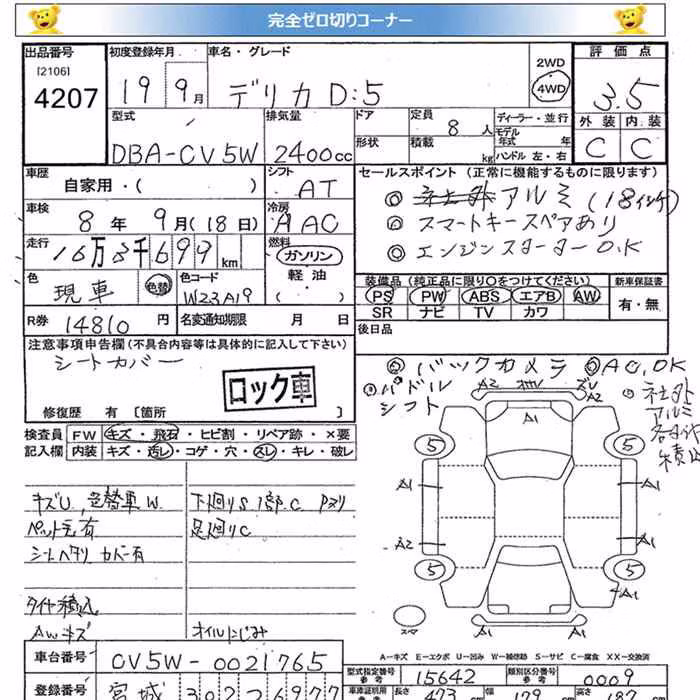 完全ゼロ切りコーナー
出品番号 初度登録年月 車名・グレード 評価点
[2106]
4207
19 9月 デリカ D:5
2WD
4WD
3.5
型式 排気量 ドア 定員 8人 ディーラー・並行 外装 内装
モデル年式 年
DBA-CV5W 2400cc 形状 積載 kg ハンドル 左・右 C C
車歴 シフト セールスポイント (正常に機能するものに限ります)
自家用・( ) AT ◎ 社外アルミ (18インチ)
車検 冷房 ◎ スマートキースペアあり
8年 9月(18日) AAC ◎ エンジンスターターO.K
走行 16万8千699km 燃料 ガソリン
軽油
( )
色 現車 色替 色コード W23A19
装備品 (純正品に限り○をつけてください) 新車保証書
PS PW ABS エアB AW 有・無
SR ナビ TV カワ
R券 14810円 名変通知期限 月 日 後日品
注意事項申告欄 (不具合内容等は具体的に記入して下さい)
シートカバー
◎ バックカメラ ◎ AC,OK
◎ パドルシフト
ロック車
社外
アルミ
積込
修復歴 有 [箇所 ]
検査員 FW キズ・飛石・ヒビ割・リペア跡・×要
記入欄 内装 キズ・汚レ・コゲ・穴・スレ・キレ・破レ
A2 A2
A1
5 5
A1 A1
A2 A1
5 5
A1
スペア
キズU,色替車W. 下廻りS1部C Pヌリ
ペット毛有 足廻りC
シートヘタリ カバー有
タイヤ積込
AWキズ オイルにじみ
A-キズ E-エクボ U-凹み W-補修跡 S-サビ C-腐食 XX-交換済
車台番号 CV5W-0021765
型式指定番号 参考 15642 類別区分番号 参考 0009
登録番号 宮城 302 ての6977
車検証別用 参考 長さ 473cm 幅 179 高さ